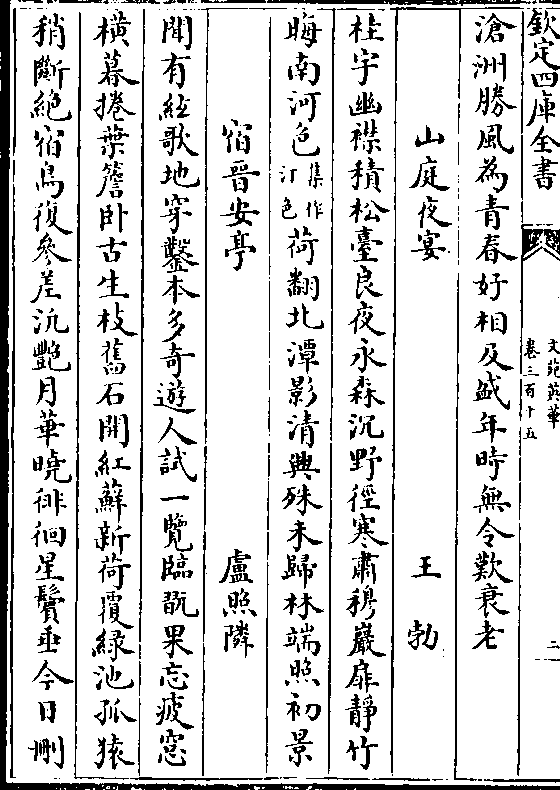 欽定四庫全書
文苑英華
卷三百十五
二
滄洲勝風為青春好相及盛年時無令歎衰老
山庭夜宴 王勃
桂宇幽襟積松臺良夜永森沉野徑寒肅穆巖扉靜竹
晦南河色集作汀色荷翻北潭影清興殊未歸林端照初景
宿晉安亭 盧照隣
聞有絃歌地穿鑿本多奇遊人試一覽臨翫果忘疲窓
橫暮捲葉簷卧古生枝舊石開紅蘚新荷覆綠池孤猿
稍斷絕宿鳥復參差汎艷月華曉徘徊星鬢垂今日刪